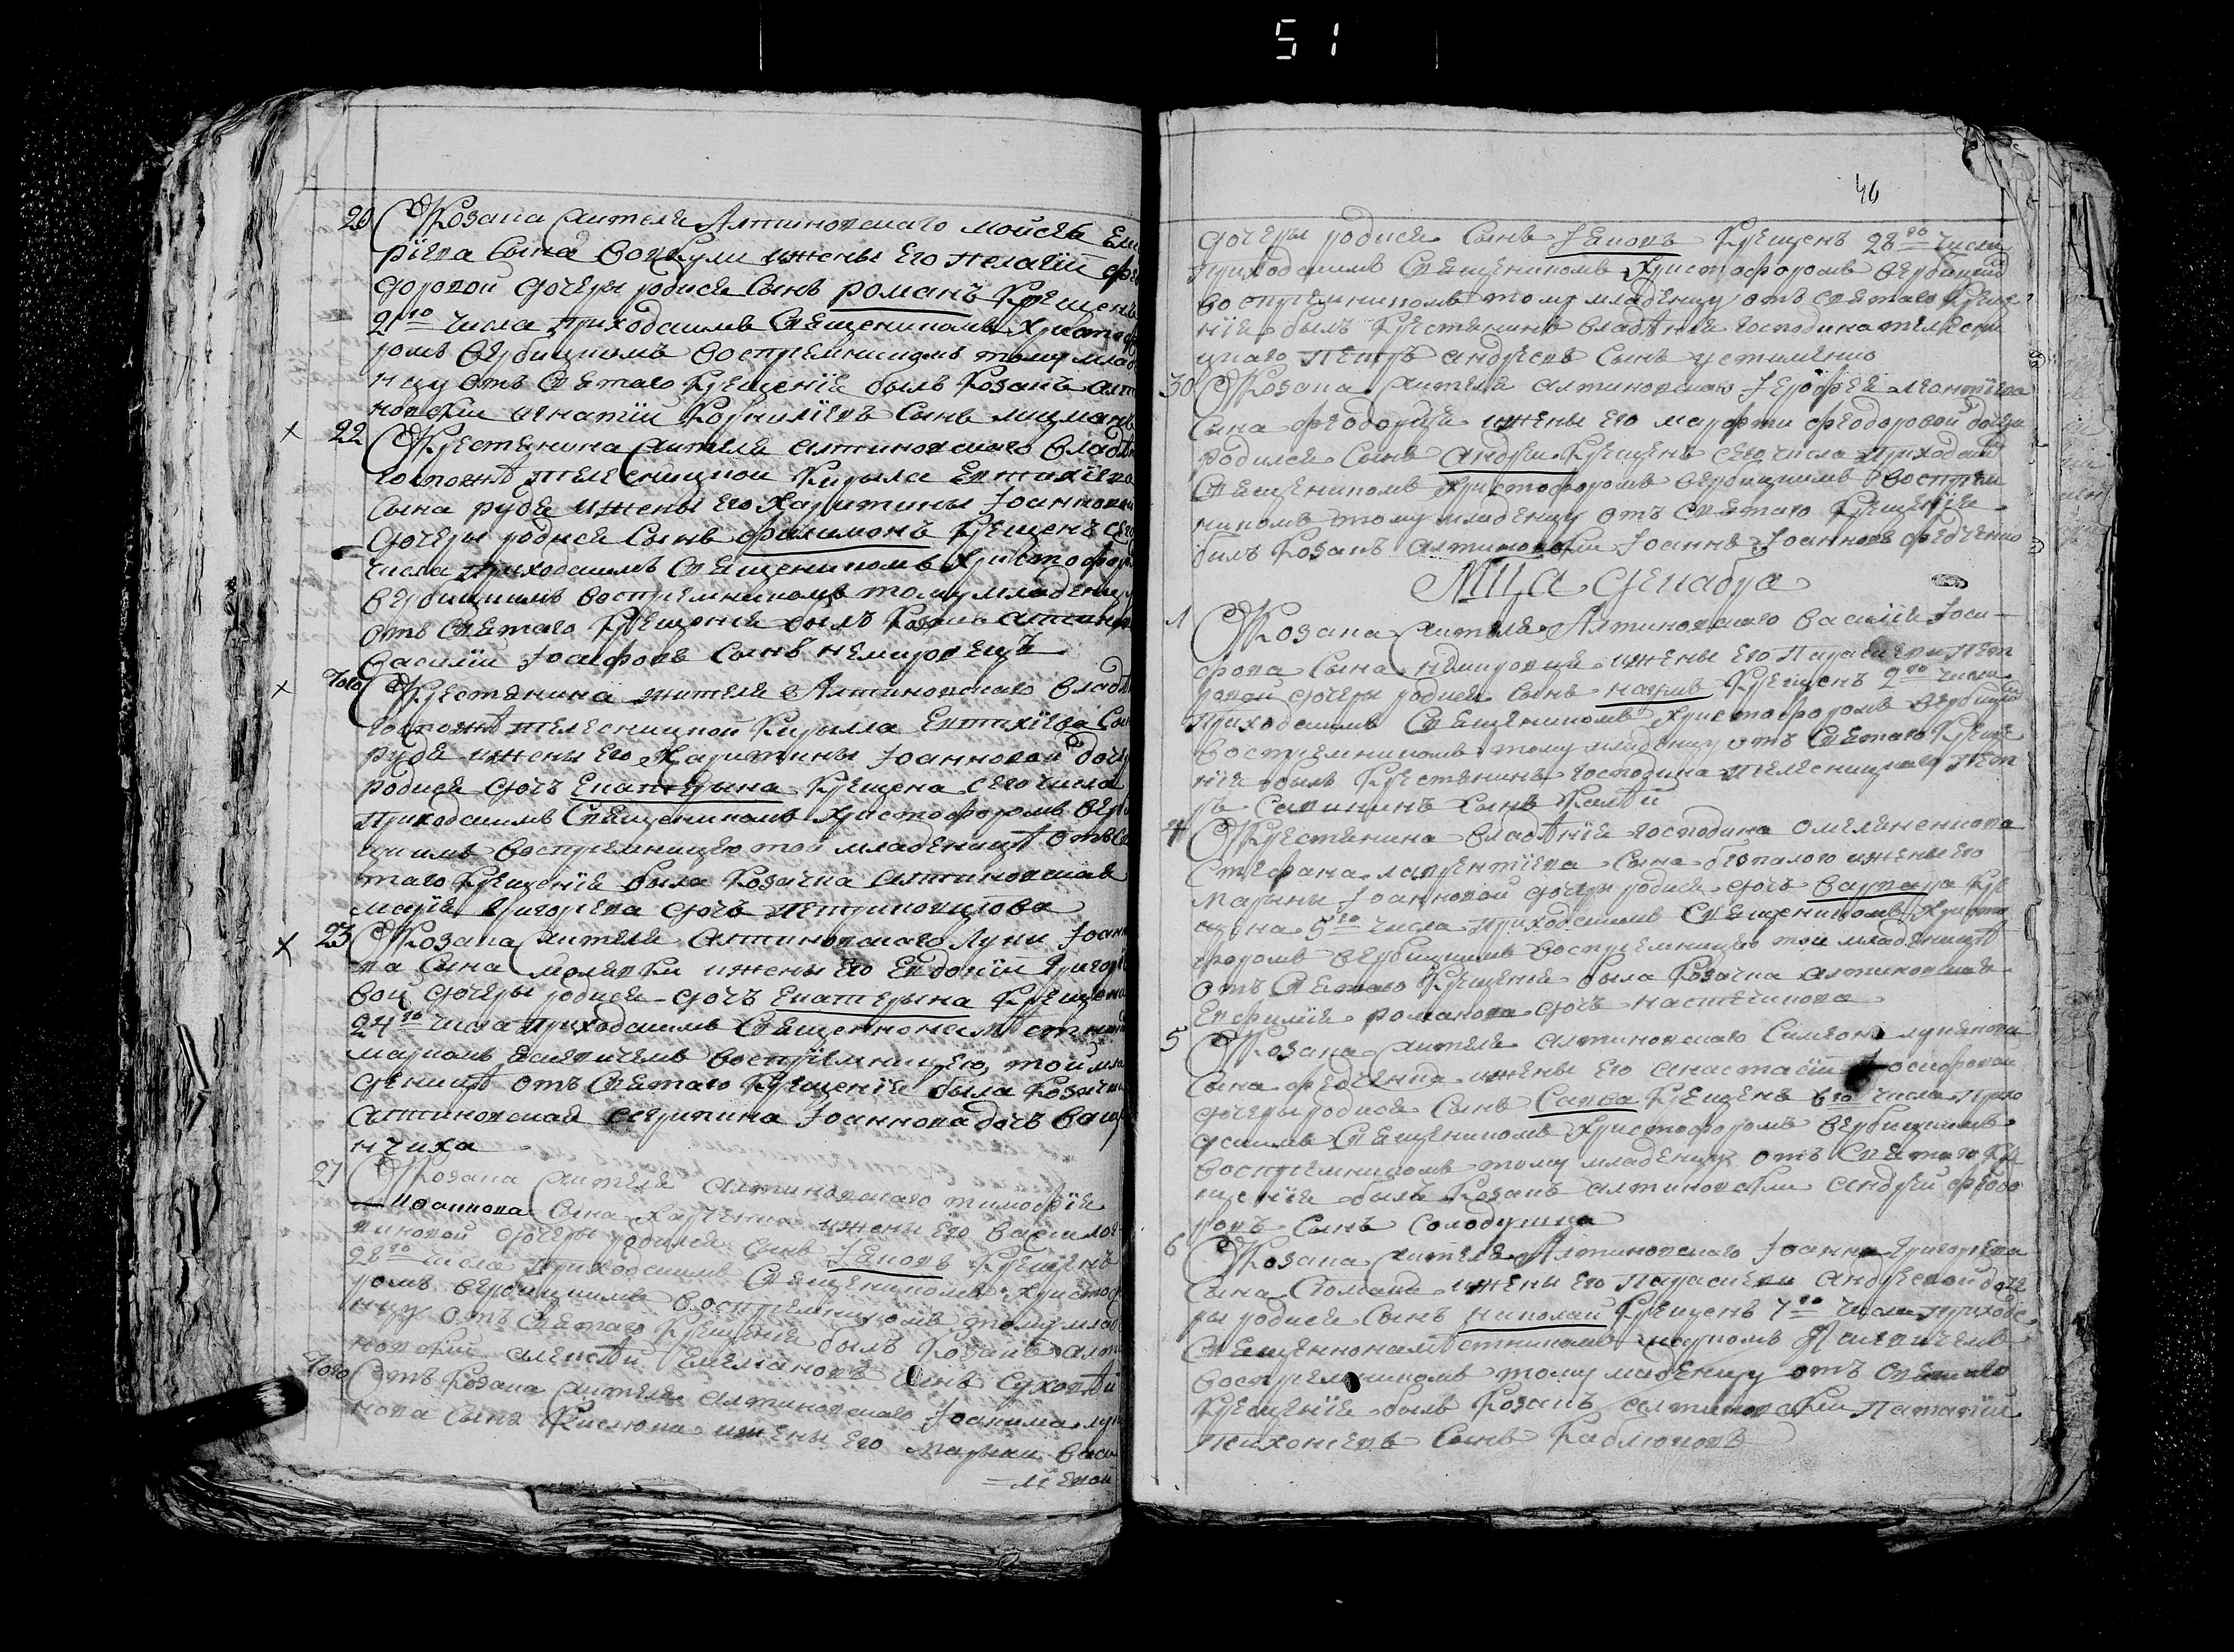 51
46
20 Ѿ Козака жителя Алтиновского Мойсея
рїева сына Вовкули ижены Его Пелагїи фео
доровой дочеры родися сынъ романъ Крещенъ
21го числа приходскимъ Священикомъ Христофо
ромъ вербицкимъ воспрїемникомъ тому младе
нцу отъ Святаго Крещенїя былъ Козакъ алти
новскїи игнатїи Корнилїевъ сынъ
22 Ѿ Крестянина жителя алтиновского владѣн
госпожѣ телесницкой Кирыла Евтихїева
сына рудя ижены его Харитины Іоанновой
дочеры родися сынъ филимонъ Крещенъ сего
числа приходскимъ Священикомъ Христофоро
вербицкимъ воспрїемникомъ тому младенцу
отъ Святаго Крещенїя былъ Козакъ алтинов
василїи Іосифовъ сынъ немировецъ
Того Ѿ Крестянина жителя Алтиновского владѣ
госпожѣ телесницкой Кирылла Евтихїева сы
рудя ижены Его Харитины Іоанновой доче
родися дочъ Екатерына Крещена сего числа
приходскимъ Священикомъ Христофоромъ верби
цкимъ воспрїемницею той младеницѣ отъ Свя
таго Крещенїя была Козачка алтиновская
марїя григорїева дочъ
23 Ѿ Козака жителя алтиновского Луки Іоанно
ва сына ижены его Евдокїи григорїе
вой дочеры родися дочъ Екатерына Крещена
24го числа приходскимъ Священнонамѣстникомъ
маркомъ воспрїемницею той мла
деницѣ отъ Святаго Крещенїя была Козачка
алтиновская агрипина Іоаннова дочъ ваще
нчиха
27 Ѿ Козака жителя алтиновского тимофїя
Иоаннова сына Харченка ижены его
дочеры родися сынъ Іаковъ Крещенъ
28го числа приходскимъ Священикомъ Христофо
ромъ вербицкимъ воспрїемникомъ тому младе
нцу отъ Святаго Крещенїя былъ Козакъ алти
новскїи алексѣи Емелїановъ сынъ суховѣи
Того Отъ Козака жителя алтиновского Іоакима луки
нова сына Кислюка ижены его марыи васи
=лїевой
дочеры родися сынъ Іаковъ Крещенъ 28го числа
приходскимъ Священикомъ Христофоромъ вербицким
воспрїемникомъ тому младенцу отъ Святаго Креще
нїя былъ Крестянинъ владѣнїя господина телесни
цкаго петръ андреевъ сынъ устименко
30 Ѿ Козака жителя алтиновского Іерофея леонтїева
сына ижены его марфы феодоровой дочеры
родился сынъ андрей Крещенъ сего числа приходским
Священикомъ Христофоромъ вербицкимъ воспрїем
никомъ тому младенцу отъ Святаго Крещенїя
былъ Козакъ алтиновскїи Іоаннъ Іоанновъ федченко
Мца декабра
1 Ѿ Козака жителя Алтиновского василїя Іоси-
фова сына немировца ижены его параскевы пет
ровой дочеры родися сынъ наумъ Крещенъ 2го числа
приходскимъ Священикомъ Христофоромъ вербицким
воспрїемникомъ тому младенцу отъ Святаго Креще
нїя былъ Крестянинъ господина телесницкаго пет
ръ сынъ
4 Ѿ Крестянина владѣнїя господина омеляненкова
Стефана лаврентїева сына безпалого ижены его
марыны Іоанновой дочеры родися дочъ варвара Кре
щена 5го числа приходскимъ Священикомъ Христо
форомъ вербицкимъ воспрїемницею той младеницѣ
отъ Святаго Крещенїя была Козачка алтиновская
Евфимїя романова дочъ
5 Ѿ Козака жителя алтиновского Симеона лукянова
сына федченка ижены его анастасїи Іосифовой
дочеры родися сынъ Савва Крещенъ 6го числа прихо
дскимъ Священикомъ Христофоромъ вербицкимъ
воспрїемникомъ тому младенцу отъ Святаго Кре
щенїя былъ Козакъ алтиновскїи андрей феодо
ровъ сынъ солодушка
6 Ѿ Козака жителя Алтиновского Іоанна григорїева
сына ижены его параскевы андреевой доче
ры родися сынъ николай Крещенъ 7го числа приходс.
Священнонамѣстникомъ маркомъ
воспрїемникомъ тому младенцу отъ Святаго
Крещенїя былъ Козакъ алтиновскїи
тихонїевъ сынъ